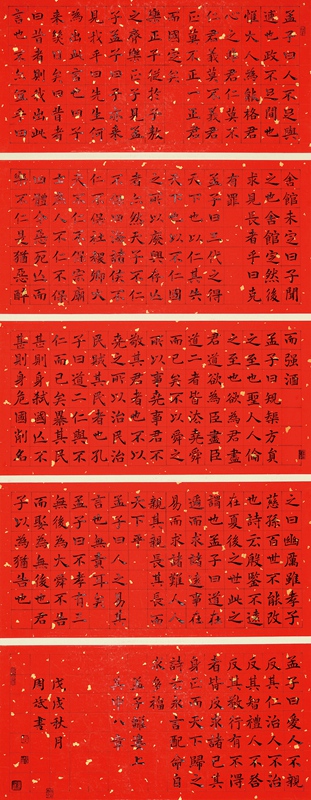 孟子曰人不足與
適也政不足間也
惟大人為能格君
心之非君仁莫不
仁君義莫不義君
正莫不正一正君
而國定矣
樂正子從於子敖
之齊樂正子見孟
子孟子曰子亦來
見我乎曰先生何
為出此言也曰子
來幾日矣曰昔者
曰昔者則我出此
言也不亦宜乎曰
舍館未定曰子聞
之也舍館定然後
求見長者乎曰克
有罪
孟子曰三代之得
天下也以仁其失
天下也以不仁國
之所以廢興存亡
者亦然天子不仁
不保四海諸侯不
仁不保社稷卿大
夫不仁不保宗廟
士庶人不仁不保
四體今惡死亡而
樂不仁是猶惡醉
而强酒
孟子曰規矩方員
之至也聖人人倫
之至也欲為君盡
君道欲為臣盡臣
道二者皆法堯舜
而已矣不以舜之
所以事堯事君不
敬其君者也不以
堯之所以治民治
民賊其民者也孔
子曰道二仁與不
仁而已矣暴其民
甚則身弒國亡不
甚則身危國削名
之曰幽厲雖孝子
慈孫百世不能改
也詩云殷鑒不遠
在夏後之世此之
謂也孟子曰道在
邇而求諸遠事在
易而求諸難人人
親其親長其長而
天下平
孟子曰人之易其
言也無責耳矣
孟子曰不孝有三
無後為大舜不告
而娶為無後也君
子以為猶告也
孟子曰愛人不親
反其仁治人不治
反其智禮人不答
反其敬行有不得
者皆反求諸己其
身正而天下歸之
詩云永言配命自
求多福
孟子離婁上
戊戌秋月
周 書